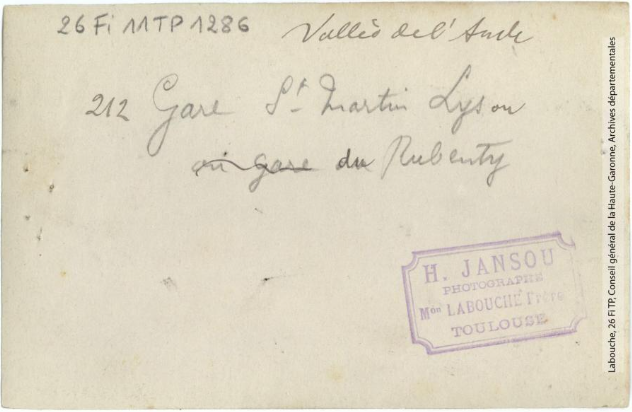 26 Fi 11 TP 1286
Vallée de l'Aude
212 Gare St Martin Lys ou
ou gare du Rebenty
H. JANSOU
PHOTOGRAPHE
Mon LABOUCHE Frère
TOULOUSE
Labouche, 26 Fi TP, Conseil général de la Haute-Garonne, Archives départementales